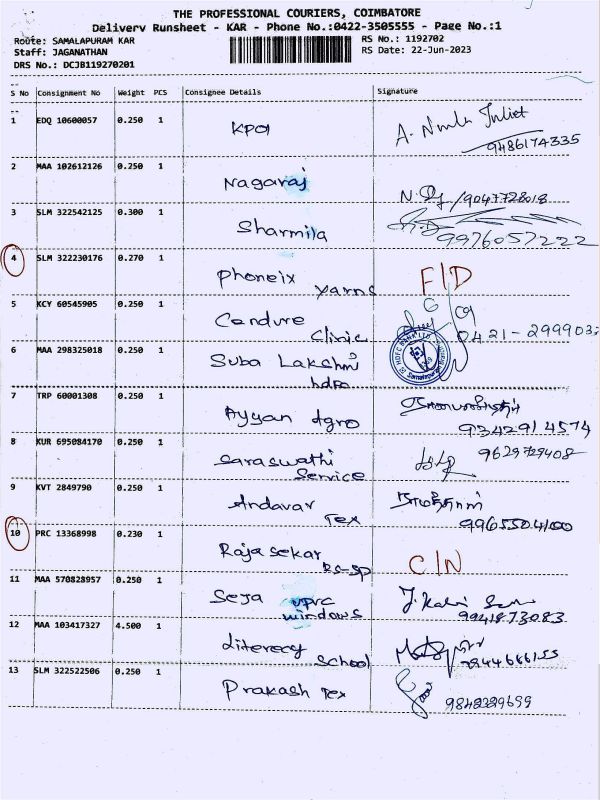 THE PROFESSIONAL COURIERS, COIMBATORE
Delivery Runsheet - KAR - Phone No.:0422-3505555 - Page No.:1
Route: SAMALAPURAM KAR RS No.: 1192702
Staff: JAGANATHAN RS Date: 22-Jun-2023
DRS No.: DCJB119270201
S No Consignment No Weight PCS Consignee Details Signature
1 EDQ 10600057 0.250 1 KPOI
9486174335
2 MAA 102612126 0.250 1 Nagaraj
9047728018
3 SLM 322542125 0.300 1 Sharmila
9976057222
4 SLM 322230176 0.270 1 Phoneix Yarns F/D
5 KCY 60545905 0.250 1 Clinic
0421-299903
6 MAA 298325018 0.250 1 Suba Lakshmi
HDFC BANK LTD
7 TRP 60001308 0.250 1 Ayyan Agro
9342914574
8 KUR 695084170 0.250 1 Saraswathi Service
9629729408
9 KVT 2849790 0.250 1 Andavar Tex
9965504100
10 PRC 13368998 0.230 1 Rajasekar C/N
11 MAA 570828957 0.250 1 Seja upvc windows
9941873083
12 MAA 103417327 4.500 1 Literecy School
13 SLM 322522506 0.250 1 Prakash Tex
9842329699